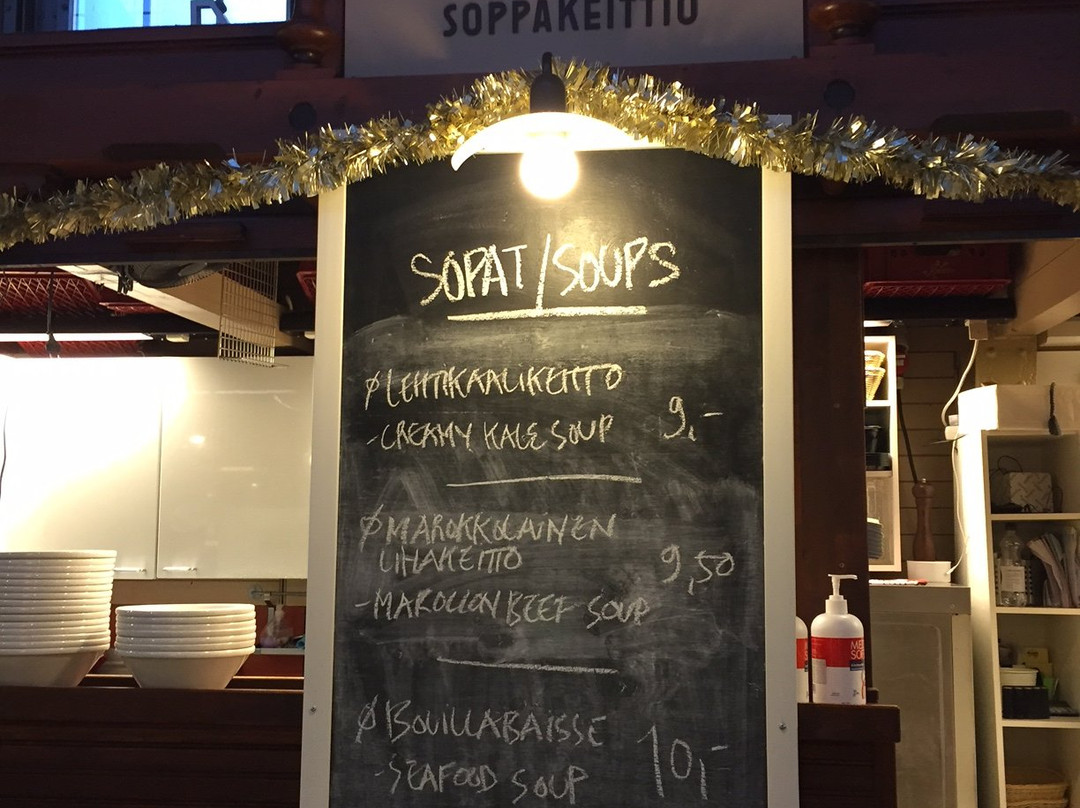 SOPPAKEITTIÖ
SOPAT/SOUPS
Ø LEHTIKAALIKEITTO
-CREAMY KALE SOUP 9,-
Ø MAROKKOLAINEN
LIHAKEITTO
-MAROCCON BEEF SOUP 9,50
Ø BOUILLABAISSE
-SEAFOOD SOUP 10,-